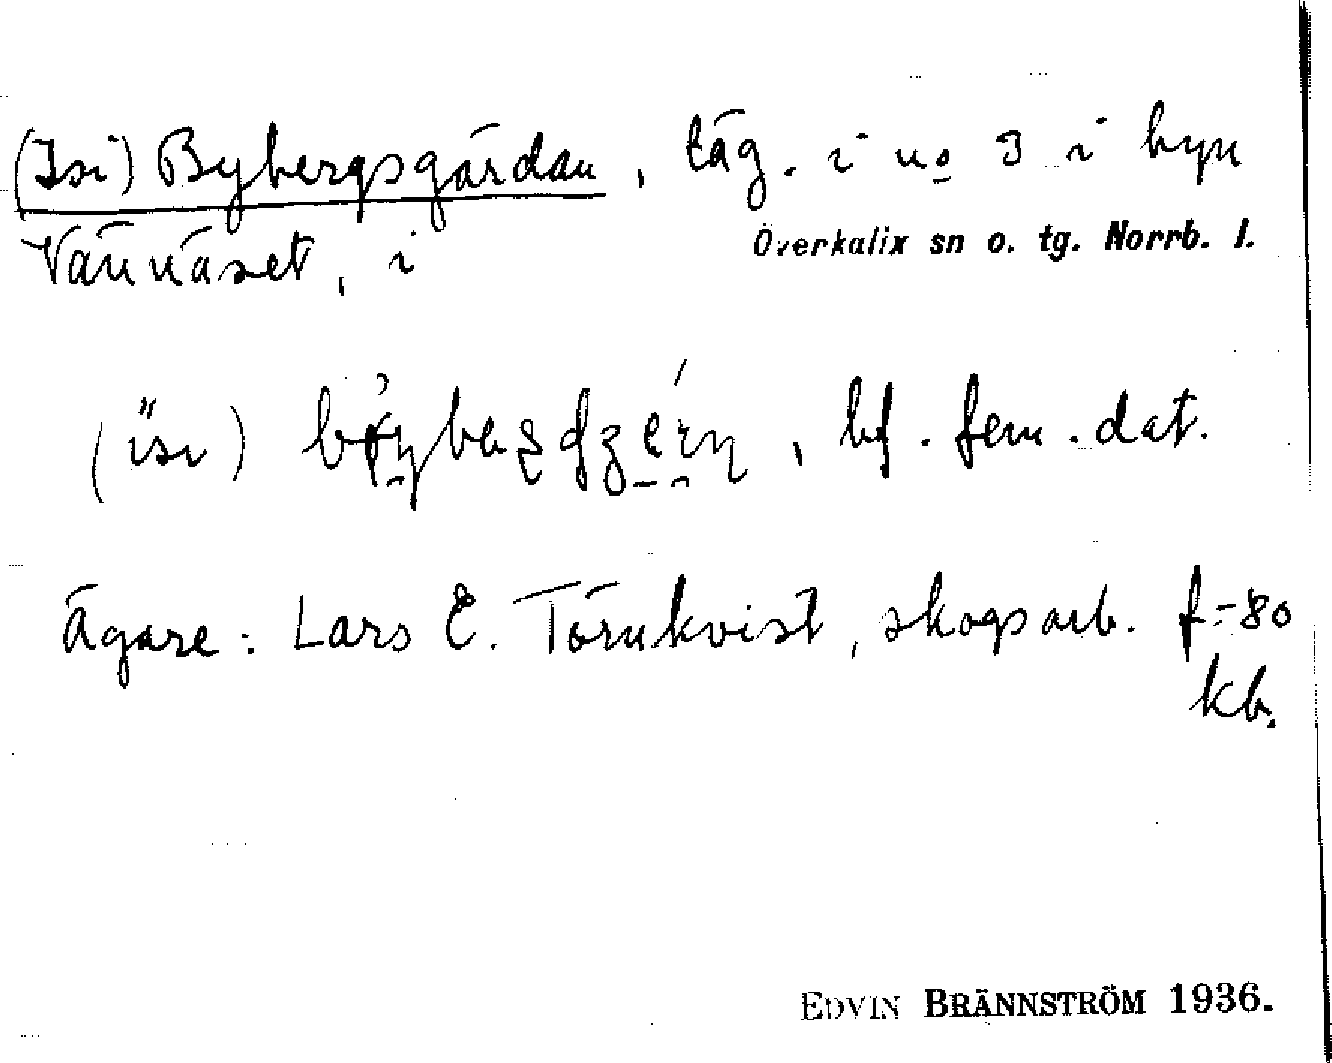 (Isi) Bybergsgärdan, läg. i no 3 i byn
Vännäset, i Överkalix sn o. tg. Norrb. l.
(isi) , bf. fem. dat.
Ägare: Lars E. Törnkvist, skogsarb. f-80
kb.
EDVIN BRÄNNSTRÖM 1936.